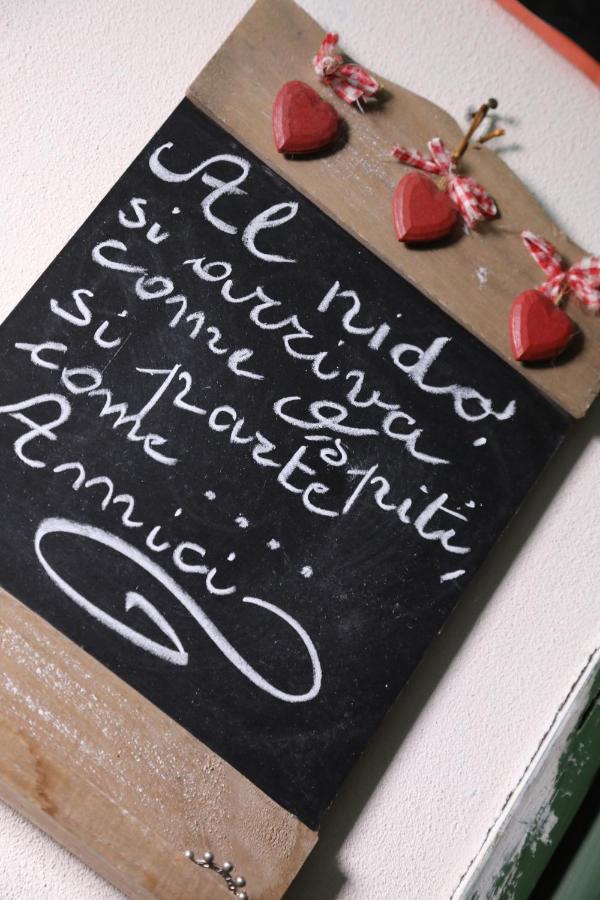 Al nido,
si arriva
come ospiti,
si parte
come ....
Amici